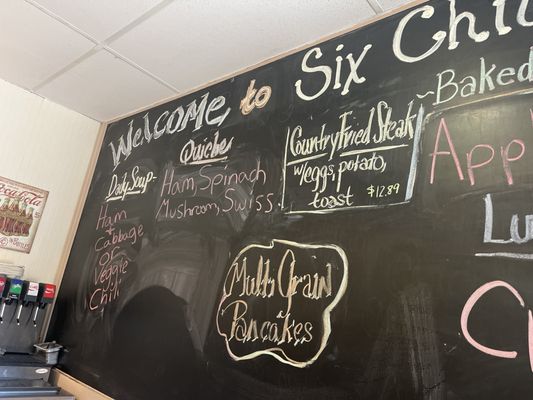 Welcome to Six Chi
~Baked
Daily Soup~
Ham
+
Cabbage
or
Veggie
Chili
Quiche
Ham, Spinach
Mushroom, Swiss
Country Fried Steak
w/eggs, potato,
toast $12.89
Multi Grain
~
Pancakes
App
Lu
C
Coca-Cola